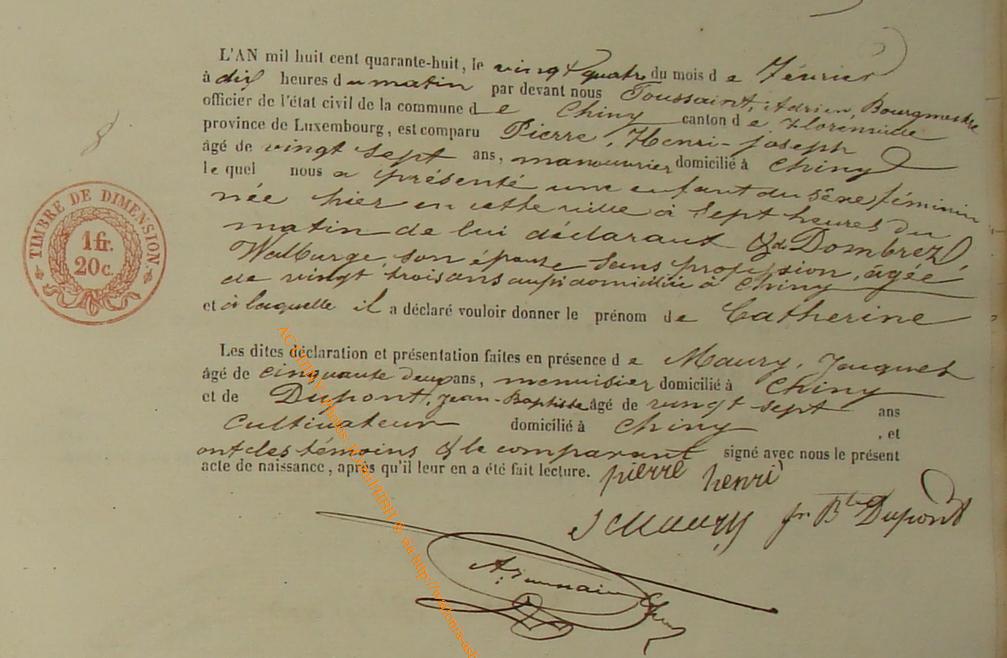 L'AN mil huit cent quarante-huit, le vingt quatre du mois de Février
à dix heures du matin par devant nous Toussaint, Adrien, Bourgmestre
officier de l'état civil de la commune de Chiny canton de Florenville
province de Luxembourg, est comparu Pierre, Henri-Joseph
âgé de vingt sept ans, manouvrier domicilié à Chiny
le quel nous a présenté une enfant du sexe féminin
née hier en cette ville à sept heures du
matin de lui déclarant & de Dombrez,
Walburge, son épouse sans profession, agée
de vingt trois ans aussi domiciliée à Chiny
et à laquelle il a déclaré vouloir donner le prénom de Catherine
Les dites déclaration et présentation faites en présence de Maury, Jacques
âgé de cinquante deux ans, menuisier domicilié à Chiny
et de Dupont, Jean-Baptiste âgé de vingt sept ans
cultivateur domicilié à Chiny , et
ont les témoins & le comparant signé avec nous le présent
acte de naissance, après qu'il leur en a été fait lecture.
pierre henri
J Maury Bte Dupont
TIMBRE DE DIMENSION
1 fr.
20 c.
8